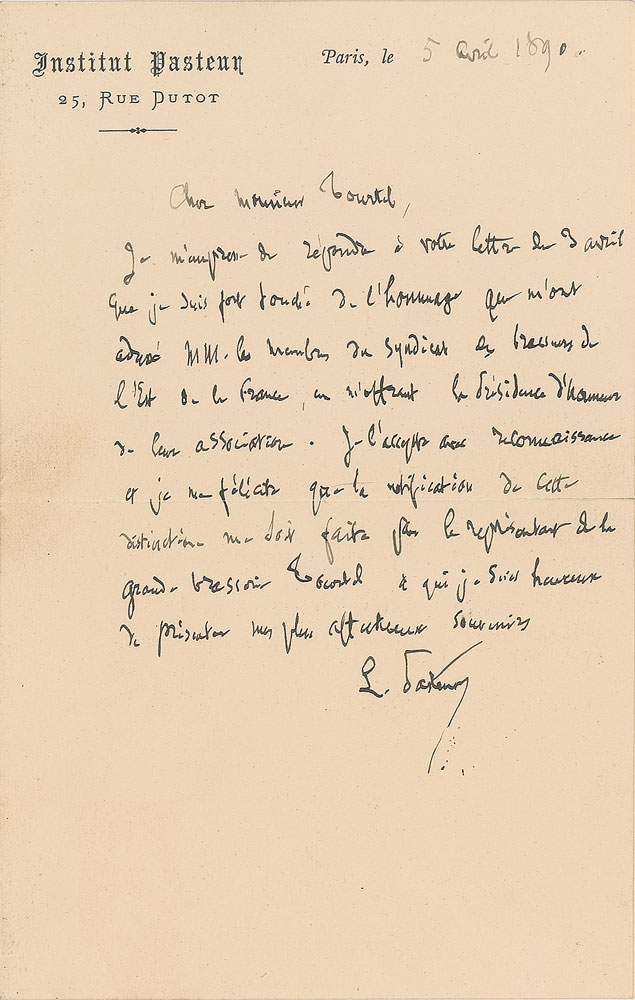 Institut Pasteur
25, RUE DUTOT
Paris, le 5 avril 1890.
Cher Monsieur Tourtel,
Je m'empresse de répondre à votre lettre du 3 avril
que je suis fort touché de l'hommage que m'ont
adressé MM. les membres du Syndicat des brasseurs de
l'Est de la France, en m'offrant la Présidence d'honneur
de leur association. Je l'accepte avec reconnaissance
et je me félicite que la notification de cette
distinction me soit faite par le représentant de la
grande brasserie Tourtel à qui je suis heureux
de présenter mes plus affectueux souvenirs
L. Pasteur